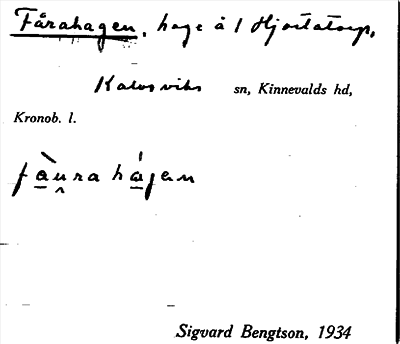 Fårahagen, hage å 1 Hjortatorp,
Kalvsviks sn, Kinnevalds hd,
Kronob. l.
fàu̯ra hágen
Sigvard Bengtson, 1934